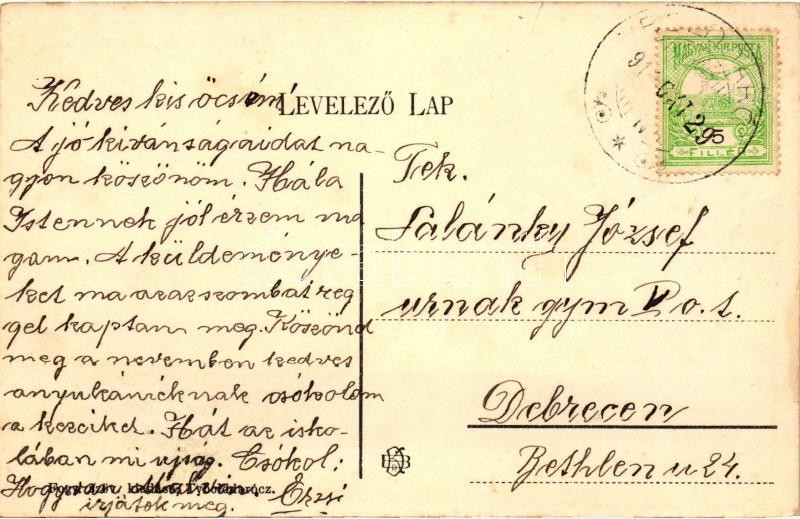 Kedves kis öcsém!
LEVELEZŐ LAP
A jó kivánságaidat na-
gyon köszönöm. Hála
Istennek jól érzem ma
gam. A küldeménye-
ket ma azaz szombat reg
gel kaptam meg. Köszönd
meg a nevemben kedves
anyukáméknak csókolom
a kezeiket. Hát az isko-
lában mi ujság. Csókol:
Hogy van
irjátok meg. Erzsi
MAGYAR KIR. POSTA
5
FILLÉR
OKT 29
Tek.
Salánky József
urnak gym V o. t.
Debrecen
Bethlen u 24.